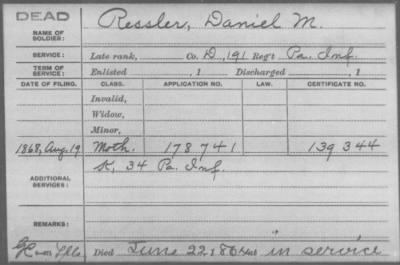 DEAD
NAME OF SOLDIER: Ressler, Daniel M.
SERVICE: Late rank, Co. D, 191 Reg't Pa. Inf.
TERM OF SERVICE: Enlisted , 1 Discharged , 1
DATE OF FILING. CLASS. APPLICATION NO. LAW. CERTIFICATE NO.
Invalid,
Widow,
Minor,
1868, Aug. 19 Moth. 178 741 139 344
ADDITIONAL SERVICES: K, 34 Pa. Inf.
REMARKS:
Died June 22, 1864 at in service